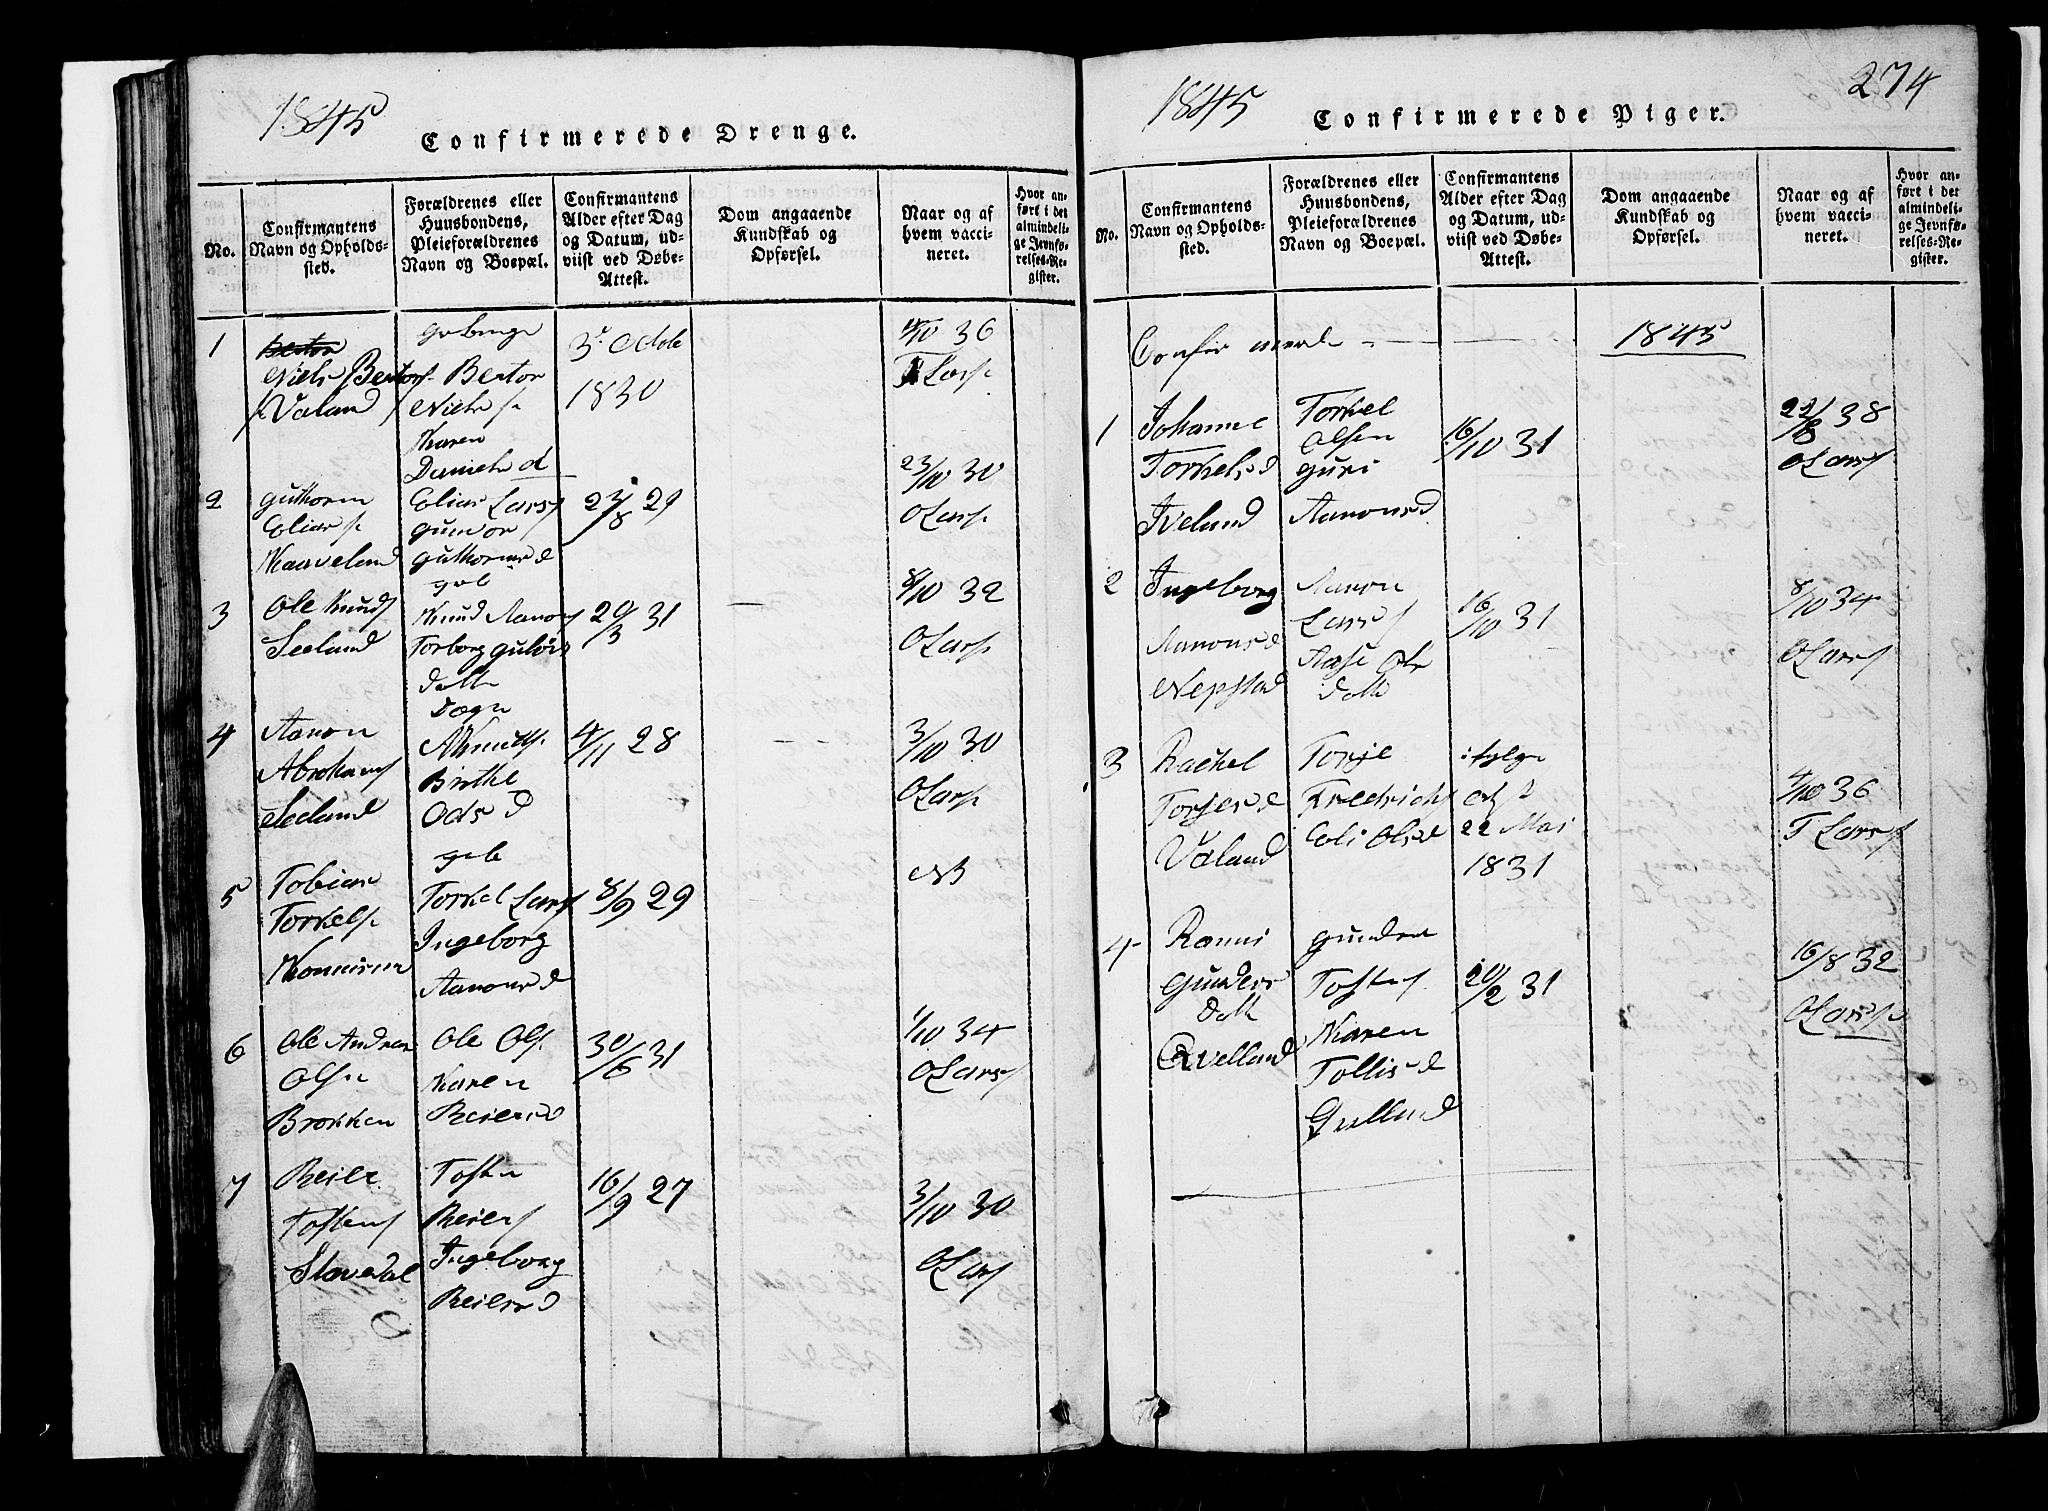 1845
Confirmerede Drenge.
No.
Confirmantens
Navn og Opholds-
sted.
Forældrenes eller
Huusbondens,
Pleieforældrenes
Navn og Boepæl.
Confirmantens
Alder efter Dag
og Datum, ud-
viist ved Døbe-
Attest.
Dom angaaende
Kundskab og
Opførsel.
Naar og af
hvem vacci-
neret.
Hvor an-
ført i det
almindeli-
ge Jevnfø-
relses-Re-
gister.
1
Niels Berto
Valand
Bertor
Niels
Karen
Daniels d
3
1830
4/10 36
T Lars
2
Guthorm
Elias
Kaaveland
Elias Lars
Gunvor
Guthorms d
23/8 29
23/10 30
O Lars
3
Ole Knuds
Seeland
gvb
Knud Aanon
Torborg
datt
29/3 31
8/10 32
O Lars
4
Aanon
Abrahams
Seeland
Birthe
Ods d
4/11 28
3/10 30
O Lars
5
Tobias
Torkels
gvb
Torkel Lars
Ingeborg
Aanons d
8/9 29
NB
6
Ole Andreas
Olsn
Brokken
Ole Ols
Karen
Reiers d
30/6 31
1/10 34
O Lars
7
Reier
Tostens
Stavedal
Tosten
Reiers
Ingeborg
Reiers d
16/9 27
3/10 30
O Lars
274
1845
Confirmerede Piger.
No.
Confirmantens
Navn og Opholds-
sted.
Forældrenes eller
Huusbondens,
Pleieforældrenes
Navn og Boepæl.
Confirmantens
Alder efter Dag
og Datum, ud-
viist ved Døbe-
Attest.
Dom angaaende
Kundskab og
Opførsel.
Naar og af
hvem vacci-
neret.
Hvor an-
ført i det
almindeli-
ge Jevnfø-
relses-Re-
gister.
Confirmerede 1845
1
Johanne
Torkels d
Iveland
Torkel
Olsen
Guri
Aanons d
16/10 31
22/8 38
O Lars
2
Ingeborg
Aanons d
Nepstad
Aanon
Lars
Aase Ols
datt
16/10 31
8/10 34
O Lars
3
Rachel
Torjes d
Valand
Torje
Fredrichs
Eli Ols d
ifølge
22 Mai
1831
4/10 36
T Lars
4
Ranni
Gunders
datt
Gunder
Tostens
Karen
Tollis d
20/2 31
16/8 32
O Lars